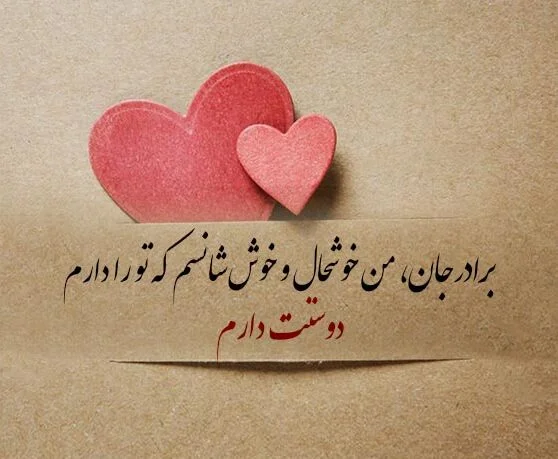 برادر جان، من خوشحال و خوش شانسم که تو را دارم
دوستت دارم